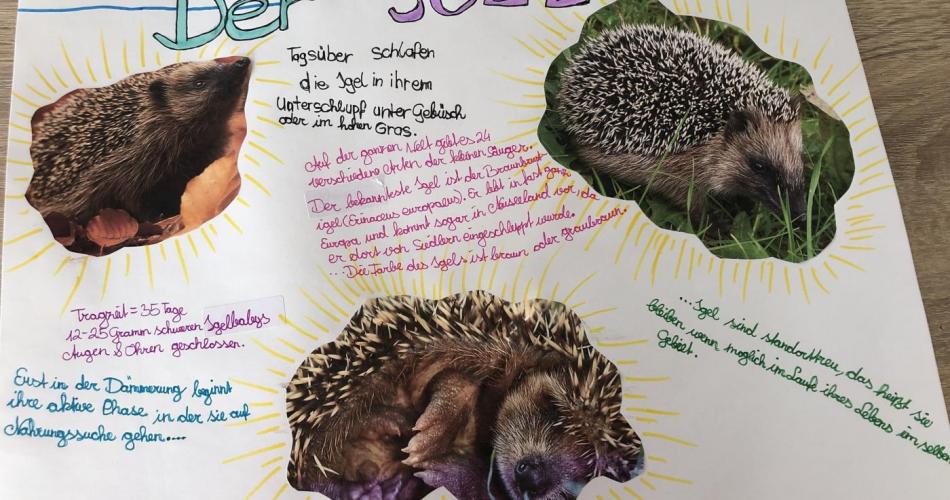 Der Igel
Tagsüber schlafen
die Igel in ihrem
Unterschlupf unter Gebüsch
oder im hohen Gras.
Auf der ganzen Welt gibt es 24
verschiedene Arten der kleinen Säuger.
Der bekannteste Igel ist der Braunbrust-
igel (Erinaceus europaeus). Er lebt in fast ganz
Europa und kommt sogar in Neuseeland vor, da
er dort von Siedlern eingeschleppt wurde.
... Die Farbe des Igels ist braun oder graubraun.
Tragzeit = 35 Tage
12-25 Gramm schweren Igelbabys
Augen & Ohren geschlossen.
Erst in der Dämmerung beginnt
ihre aktive Phase in der sie auf
Nahrungssuche gehen....
...Igel sind standorttreu, das heißt sie
bleiben wenn möglich im Laufe ihres Lebens im selben
Gebiet.